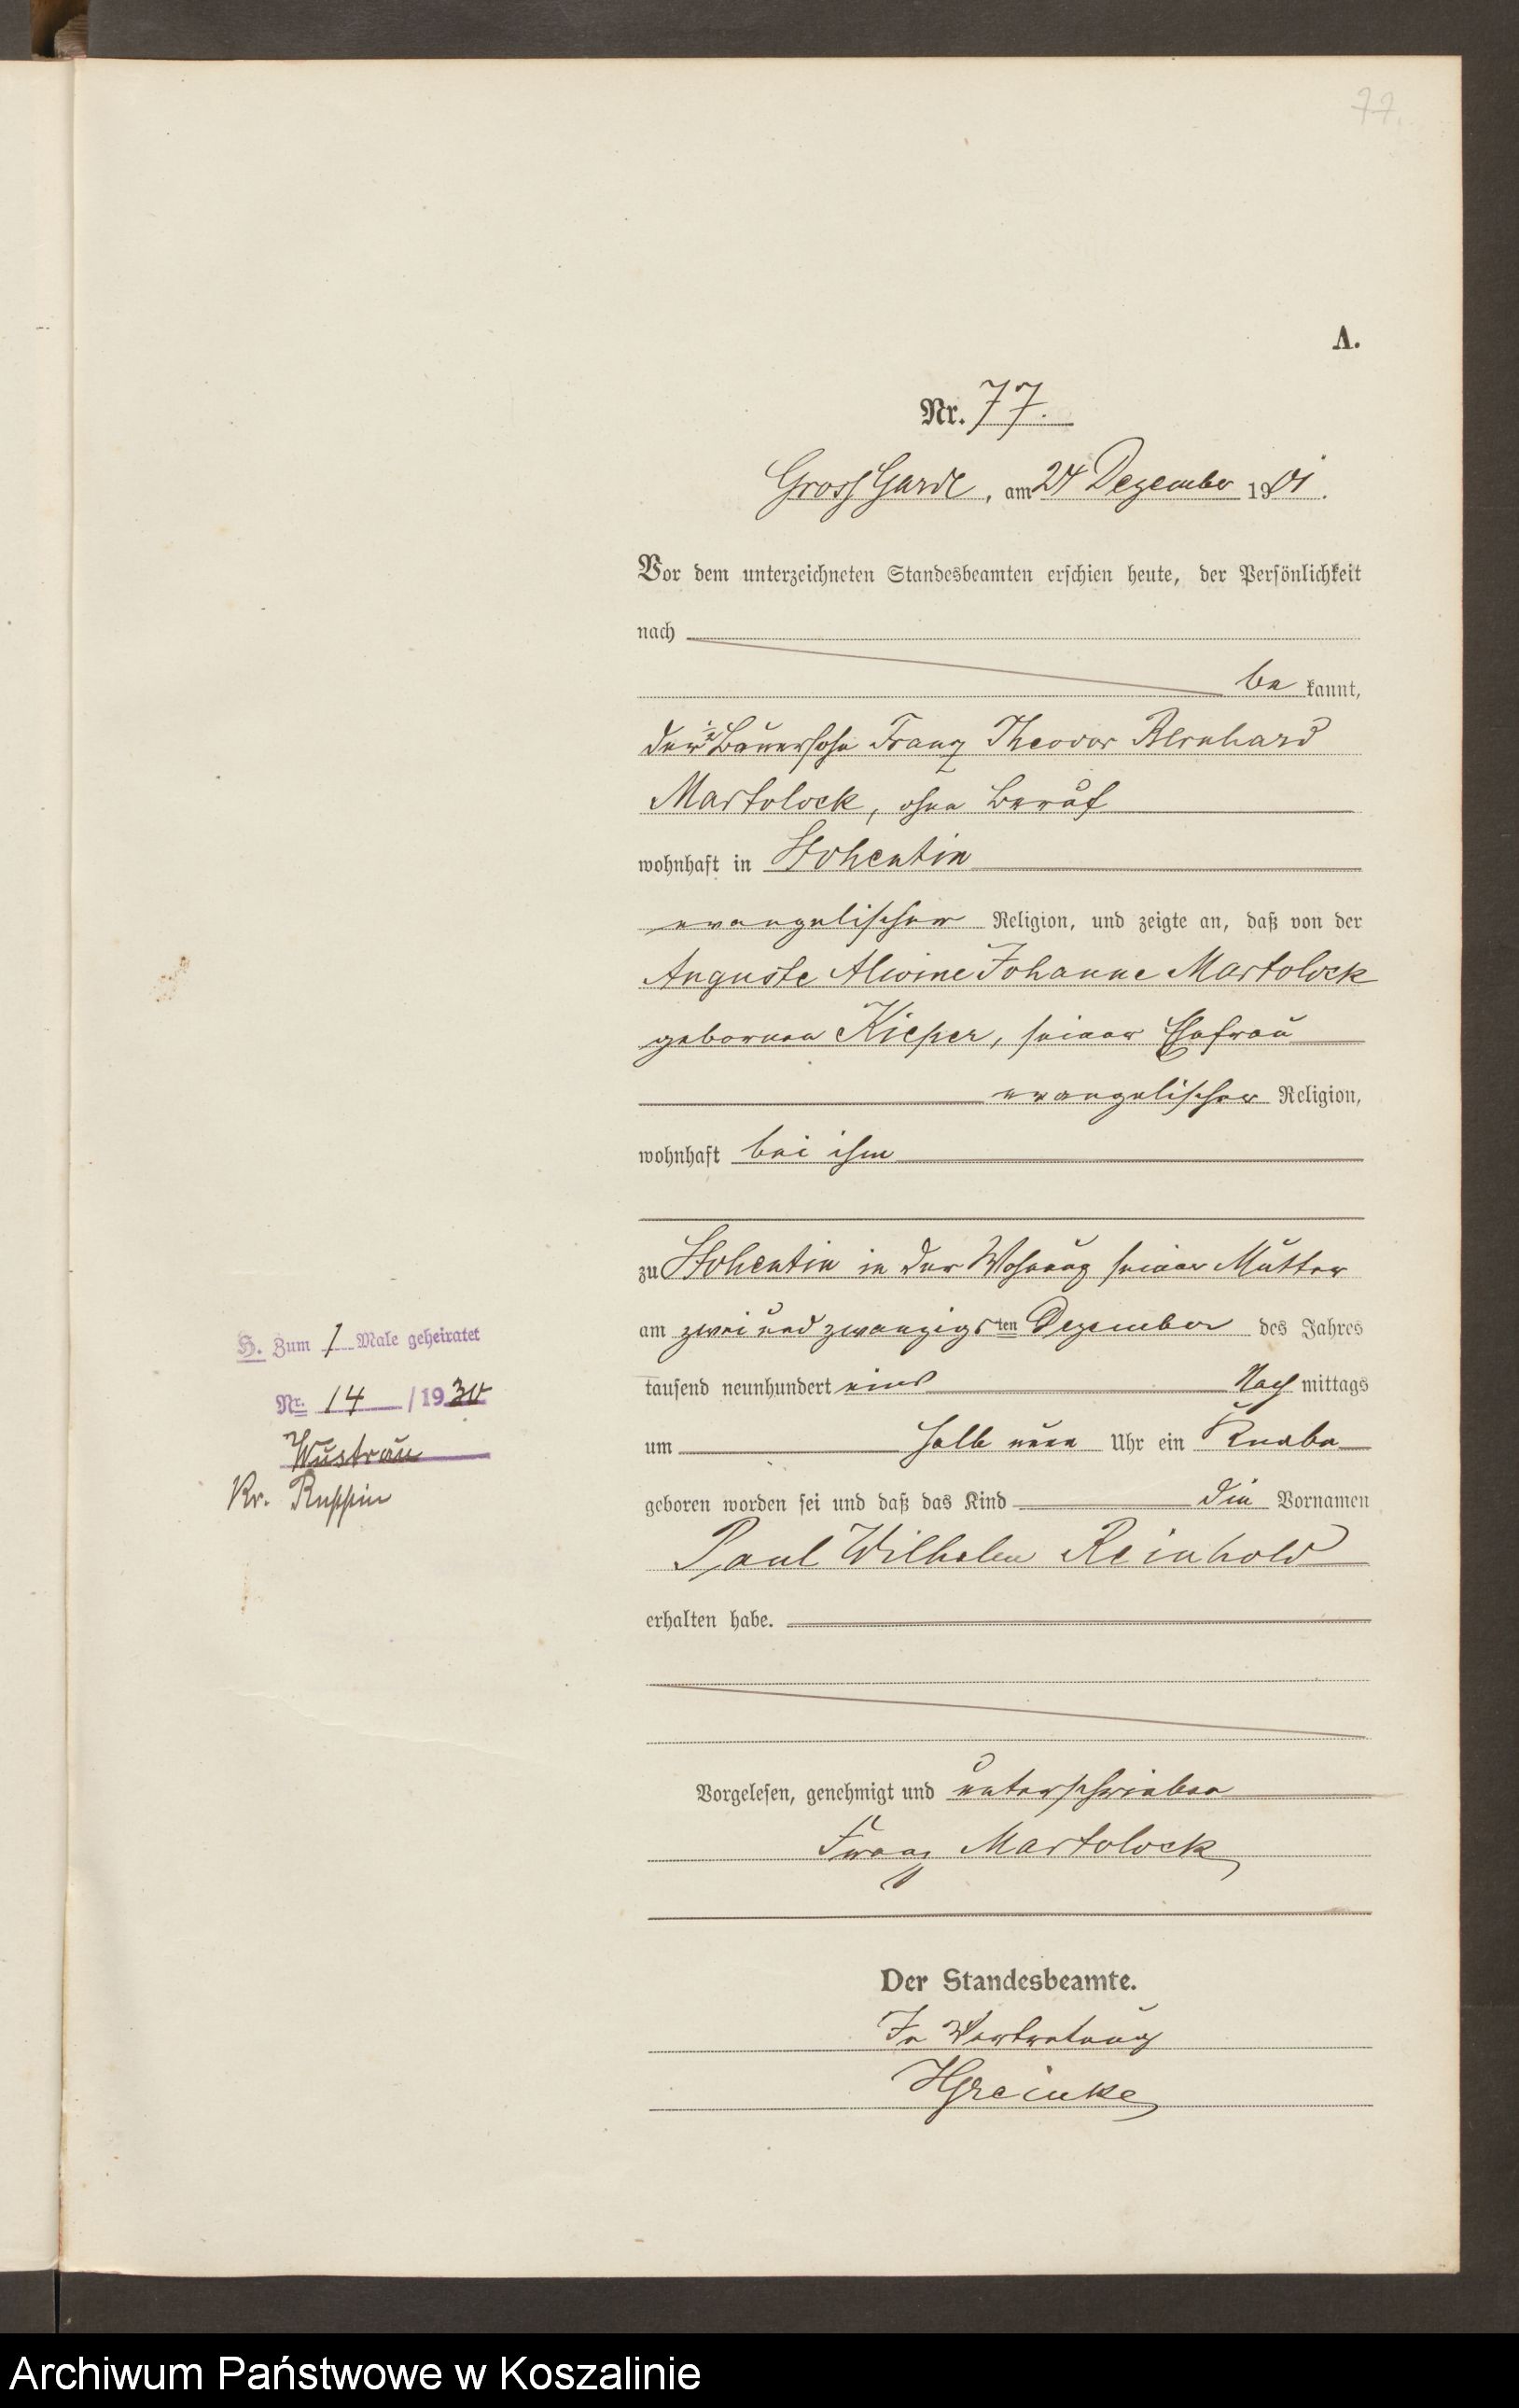 77.
A.
Nr. 77.
Gross Garde, am 24 Dezember 1901.
Vor dem unterzeichneten Standesbeamten erschien heute, der Persönlichkeit
nach
be kannt,
der Bauersohn Franz Theodor Bernhard
Martolock, ohne Beruf
wohnhaft in Stohentin
evangelischer Religion, und zeigte an, daß von der
Auguste Alwine Johanne Martolock
geborenen Kieper, seiner Ehefrau
evangelischer Religion,
wohnhaft bei ihm
zu Stohentin in der Wohnung seiner Mutter
am zwei und zwanzigsten Dezember des Jahres
tausend neunhundert eins Nach mittags
um halb neun Uhr ein Knabe
geboren worden sei und daß das Kind die Vornamen
Paul Wilhelm Reinhold
erhalten habe.
Vorgelesen, genehmigt und unterschrieben
Franz Martolock
Der Standesbeamte.
In Vertretung
HGreinke
H. Zum 1 Male geheiratet
Nr. 14 /1930
Wustrau
Kr. Ruppin
Archiwum Państwowe w Koszalinie